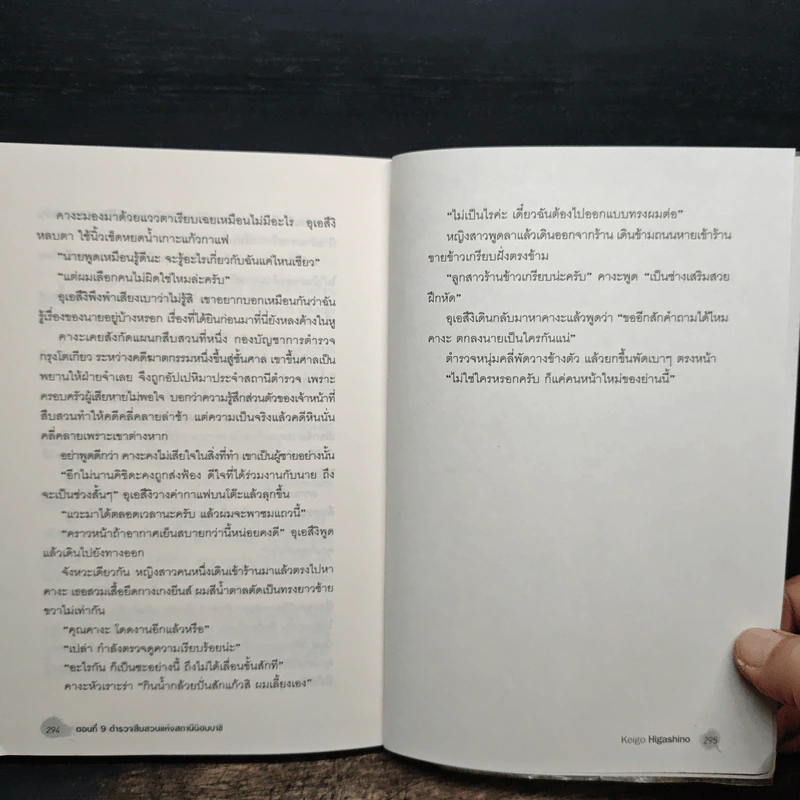 คางะมองมาด้วยแววตาเรียบเฉยเหมือนไม่มีอะไร อุเอสึงิ
หลบตา ใช้นิ้วเช็ดหยดน้ำเกาะแก้วกาแฟ
“นายพูดเหมือนรู้ดีนะ จะรู้อะไรเกี่ยวกับฉันแค่ไหนเชียว”
“แต่ผมเลือกคนไม่ผิดใช่ไหมล่ะครับ”
อุเอสึงิพึงพำเสียงเบาว่าไม่รู้สิ เขาอยากบอกเหมือนกันว่าฉัน
รู้เรื่องของนายอยู่บ้างหรอก เรื่องที่ได้ยินก่อนมาที่นี่ยังหลงค้างในหู
คางะเคยสังกัดแผนกสืบสวนที่หนึ่ง กองบัญชาการตำรวจ
กรุงโตเกียว ระหว่างคดีฆาตกรรมหนึ่งขึ้นสู่ชั้นศาล เขาขึ้นศาลเป็น
พยานให้ฝ่ายจำเลย จึงถูกอัปเปหิมาประจำสถานีตำรวจ เพราะ
ครอบครัวผู้เสียหายไม่พอใจ บอกว่าความรู้สึกส่วนตัวของเจ้าหน้าที่
สืบสวนทำให้คดีคลี่คลายล่าช้า แต่ความเป็นจริงแล้วคดีหินนั่น
คลี่คลายเพราะเขาต่างหาก
อย่าพูดดีกว่า คางะคงไม่เสียใจในสิ่งที่ทำ เขาเป็นผู้ชายอย่างนั้น
“อีกไม่นานคิชิดะคงถูกส่งฟ้อง ดีใจที่ได้ร่วมงานกับนาย ถึง
จะเป็นช่วงสั้นๆ” อุเอสึงิวางค่ากาแฟบนโต๊ะแล้วลุกขึ้น
“แวะมาได้ตลอดเวลานะครับ แล้วผมจะพาชมแถวนี้”
“คราวหน้าถ้าอากาศเย็นสบายกว่านี้หน่อยคงดี” อุเอสึงิพูด
แล้วเดินไปยังทางออก
จังหวะเดียวกัน หญิงสาวคนหนึ่งเดินเข้าร้านมาแล้วตรงไปหา
คางะ เธอสวมเสื้อยืดกางเกงยีนส์ ผมสีน้ำตาลตัดเป็นทรงยาวซ้าย
ขวาไม่เท่ากัน
“คุณคางะ โดดงานอีกแล้วหรือ”
“เปล่า กำลังตรวจดูความเรียบร้อยน่ะ”
“อะไรกัน ก็เป็นซะอย่างนี้ ถึงไม่ได้เลื่อนขั้นสักที”
คางะหัวเราะร่า “กินน้ำกล้วยปั่นสักแก้วสิ ผมเลี้ยงเอง”
294 ตอนที่ 9 ตำรวจสืบสวนแห่งสถานีนิฮมบาชิ
“ไม่เป็นไรค่ะ เดี๋ยวฉันต้องไปออกแบบทรงผมต่อ”
หญิงสาวพูดลาแล้วเดินออกจากร้าน เดินข้ามถนนหายเข้าร้าน
ขายข้าวเกรียบฝั่งตรงข้าม
“ลูกสาวร้านข้าวเกรียบน่ะครับ” คางะพูด “เป็นช่างเสริมสวย
ฝึกหัด”
อุเอสึงิเดินกลับมาหาคางะแล้วพูดว่า “ขออีกสักคำถามได้ไหม
คางะ ตกลงนายเป็นใครกันแน่”
ตำรวจหนุ่มคลี่พัดวางข้างตัว แล้วยกขึ้นพัดเบาๆ ตรงหน้า
“ไม่ใช่ใครหรอกครับ ก็แค่คนหน้าใหม่ของย่านนี้”
Keigo Higashino 295